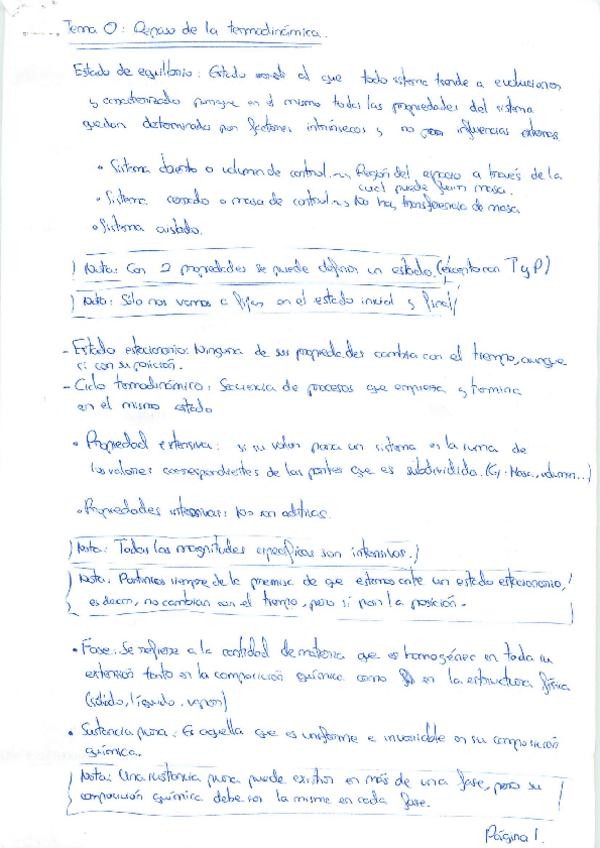 Tema 0: Repaso de la termodinámica.
Estado de equilibrio: Estado al que todo sistema tiende a evolucionar
y caracterizado porque en el mismo todas las propiedades del sistema
quedan determinadas por factores intrínsecos y no influencias externas
• Sistema abierto o volumen de control ~> Región del espacio a través de la
cual puede fluir masa.
• Sistema cerrado o masa de control ~> No hay transferencia de masa
• Sistema aislado.
Nota: Con 2 propiedades se puede definir un estado. (excepto con T y P)
Nota: Sólo nos vamos a fijar en el estado inicial y final
- Estado estacionario: Ninguna de sus propiedades cambia con el tiempo, aunque
si con su posición.
- Ciclo termodinámico: Secuencia de procesos que empieza y termina
en el mismo estado
• Propiedad extensiva: si su valor para un sistema es la suma de
los valores correspondientes de las partes que es subdividida. (Ej: Masa, volumen...)
• Propiedades intensivas: No son aditivas.
Nota: Todas las magnitudes específicas son intensivas.
Nota: Partimos siempre de la premisa de que estamos ante un estado estacionario,
es decir, no cambian con el tiempo, pero si con la posición.
• Fase: Se refiere a la cantidad de materia que es homogénea en toda su
extensión tanto en la composición química como en la estructura física
(sólido, líquido, vapor)
• Sustancia pura: Es aquella que es uniforme e invariable en su composición
química.
Nota: Una sustancia pura puede existir en más de una fase, pero su
composición química debe ser la misma en cada fase.
Página 1.